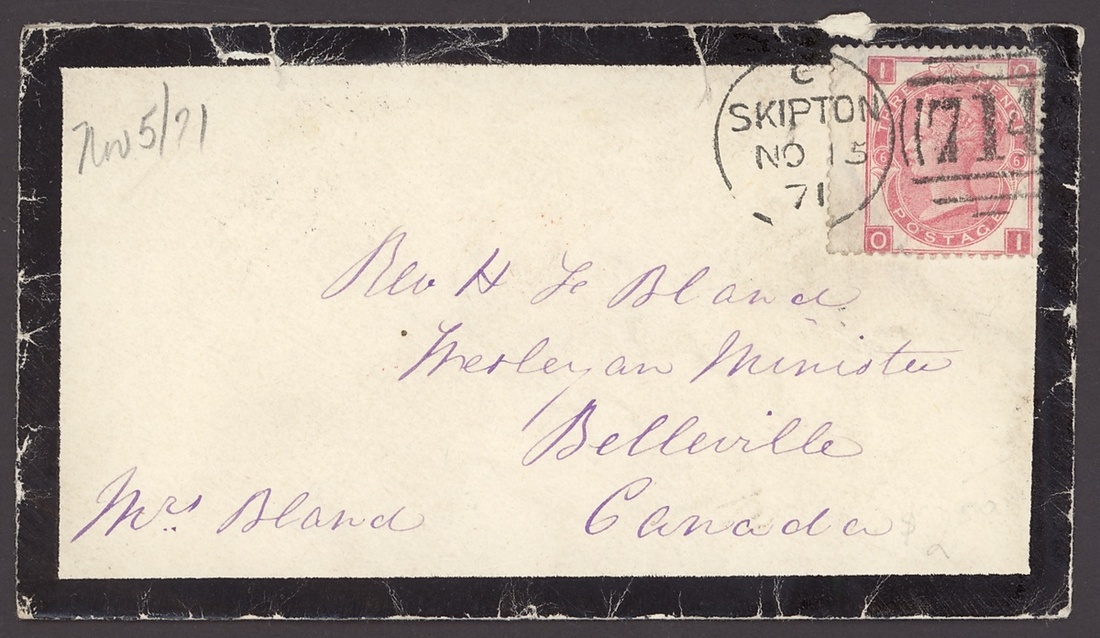 Nov 5/71
C
SKIPTON
NO 15
71
714
I O
THREE PENCE
6 6
POSTAGE
O I
Rev H Le Bland
Wesleyan Minister
Belleville
Canada
Mrs Bland